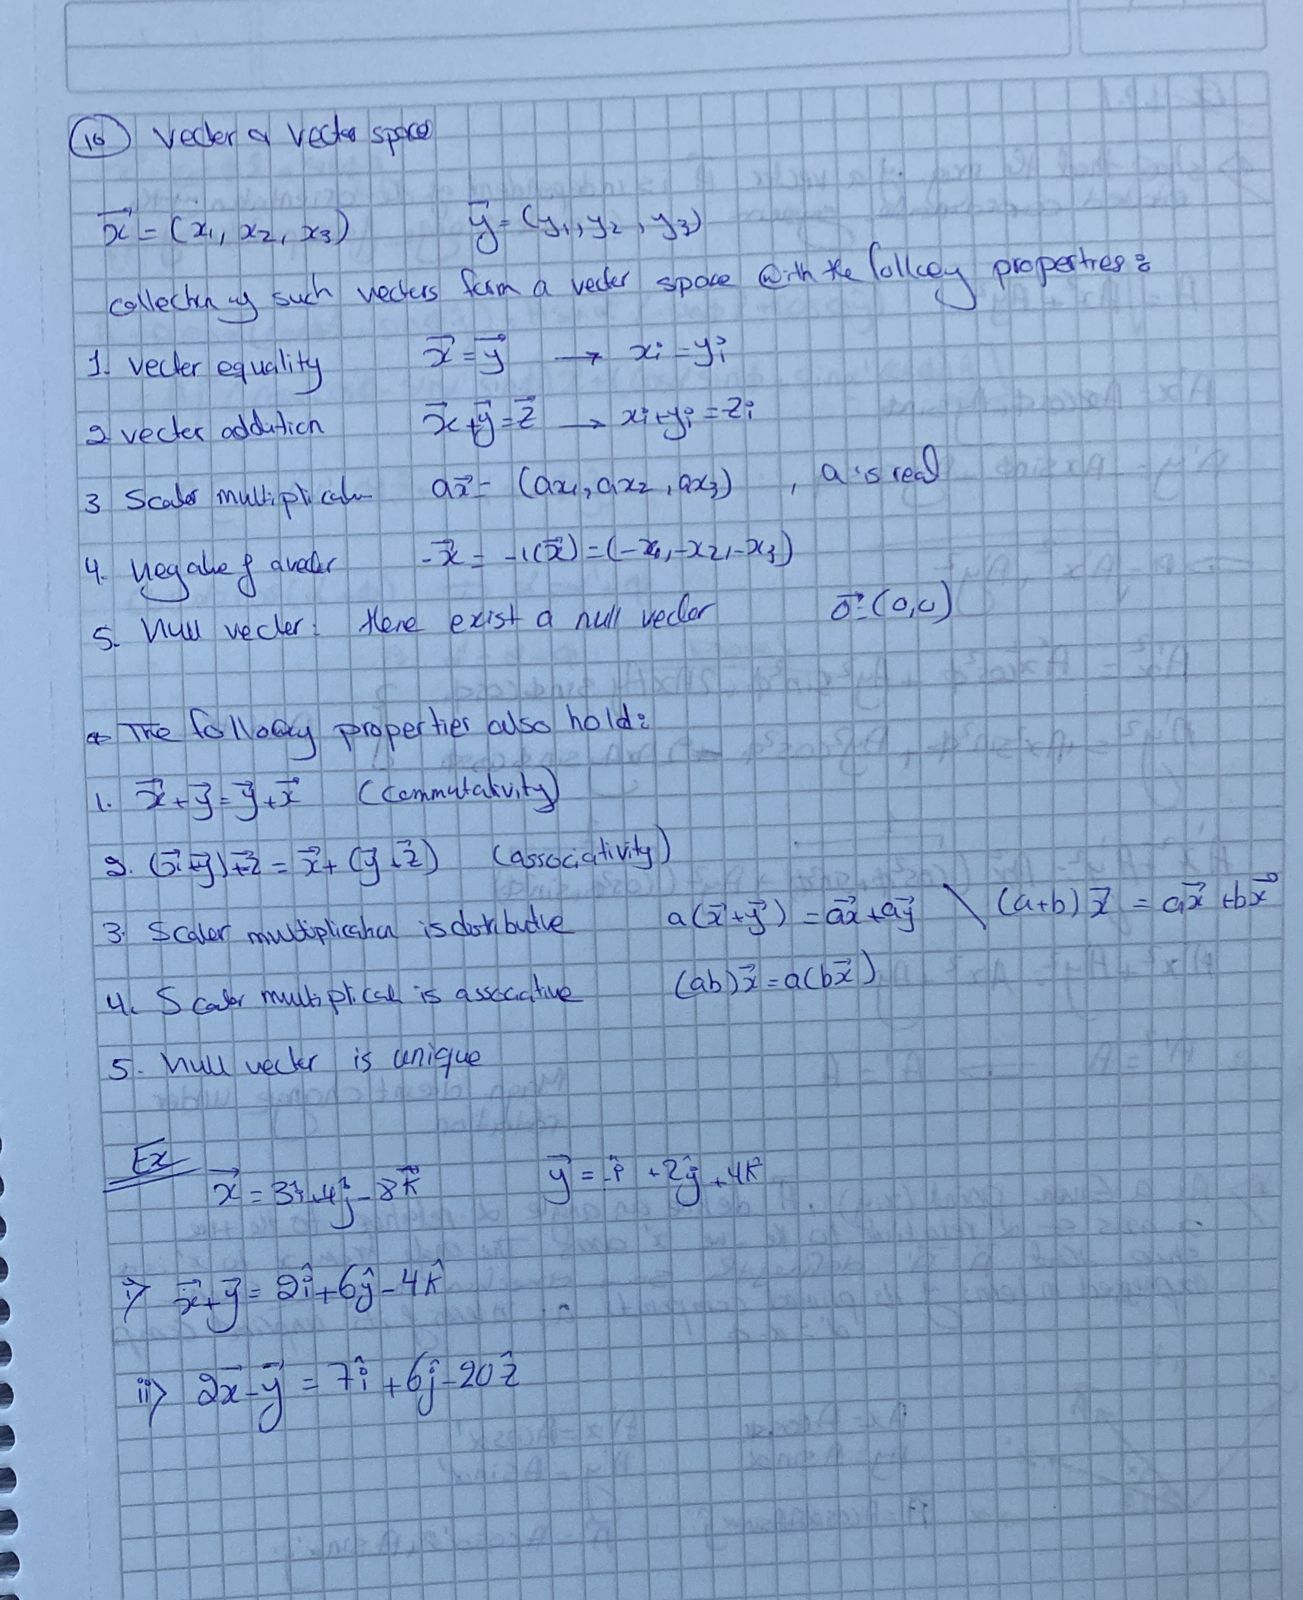 10 Vector & Vector space
x⃗ = (x₁, x₂, x₃) y⃗ = (y₁, y₂, y₃)
collection of such vectors form a vector space with the following properties:
1. vector equality x⃗ = y⃗ → xᵢ = yᵢ
2 vector addition x⃗ + y⃗ = z⃗ → xᵢ + yᵢ = zᵢ
3 Scalar multiplication ax⃗ = (ax₁, ax₂, ax₃) , a is real
4. Negative of a vector -x⃗ = -1(x⃗) = (-x₁, -x₂, -x₃)
5. Null vector: there exist a null vector 0⃗ = (0,0)
* The following properties also hold:
1. x⃗ + y⃗ = y⃗ + x⃗ (commutativity)
2. (x⃗ + y⃗) + z⃗ = x⃗ + (y⃗ + z⃗) (associativity)
3. Scalar multiplication is distributive a(x⃗ + y⃗) = ax⃗ + ay⃗ \ (a+b) x⃗ = ax⃗ + bx⃗
4. Scalar multiplication is associative (ab)x⃗ = a(bx⃗)
5. Null vector is unique
Ex x⃗ = 3î + 4ĵ - 8k⃗ y⃗ = -î + 2ĵ + 4k̂
i) x⃗ + y⃗ = 2î + 6ĵ - 4k̂
ii) 2x⃗ - y⃗ = 7î + 6ĵ - 20ẑ